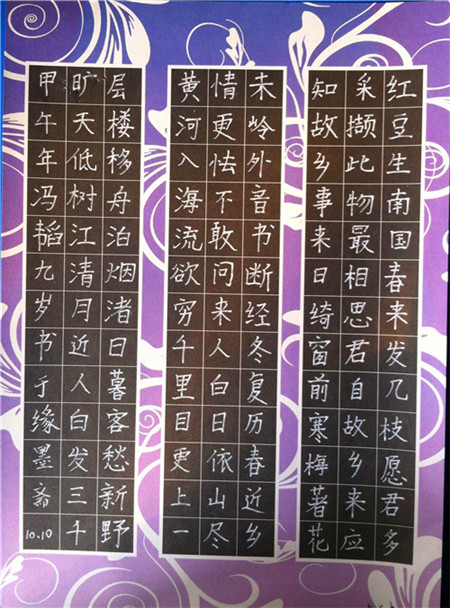 红豆生南国春来发几枝愿君多
采撷此物最相思君自故乡来应
知故乡事来日绮窗前寒梅著花
未岭外音书断经冬复历春近乡
情更怯不敢问来人白日依山尽
黄河入海流欲穷千里目更上一
层楼移舟泊烟渚日暮客愁新野
旷天低树江清月近人白发三千
甲午年冯韬九岁书于缘墨斋10.10